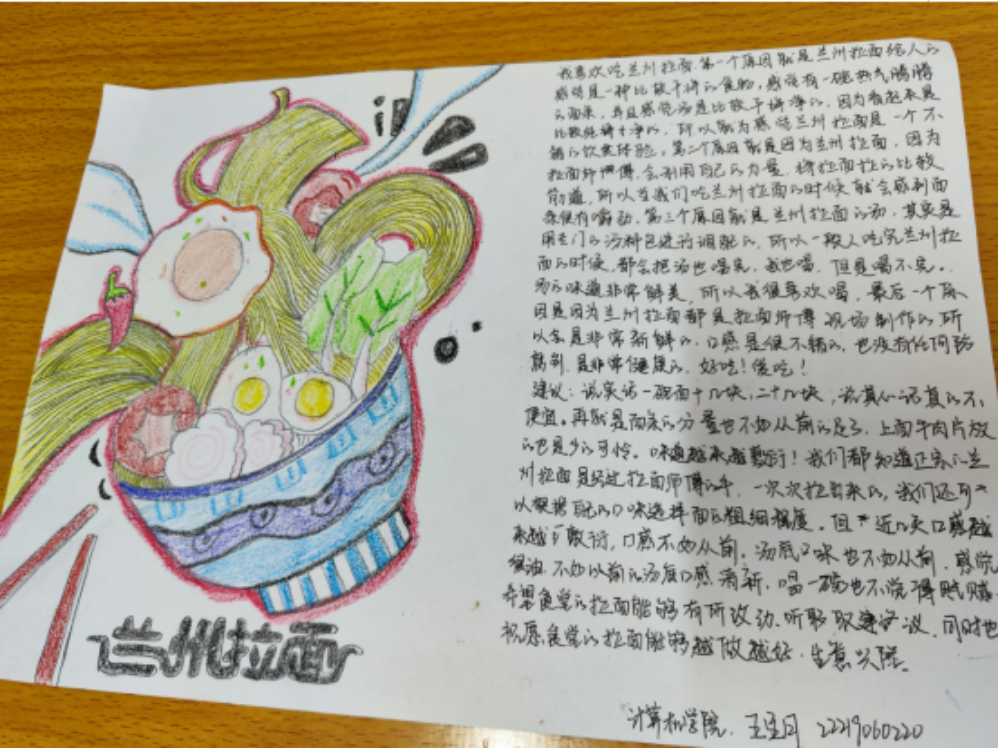 我喜欢吃兰州拉面.第一个原因就是兰州拉面给人的
感觉是一种比较干净的食物,感觉有一碗热气腾腾
的面条,并且感觉汤是比较干净的,因为看起来是
比较纯净干净的,所以就为感觉兰州拉面是一个不
错的饮食体验。第二个原因就是因为兰州拉面,因为
拉面师傅,会利用自己的力量,将拉面拉的比较
筋道,所以当我们吃兰州拉面的时候就会感到面
条很有嚼劲.第三个原因就是兰州拉面的汤,其实是
用专门的汤料包进行调配的,所以一般人吃完兰州拉
面的时候,都会把汤也喝完,我也喝,但是喝不完。
汤的味道非常鲜美,所以我很喜欢喝,最后一个原
因是因为兰州拉面都是拉面师傅现场制作的,所
以会是非常新鲜的,口感是很不错的,也没有任何防
腐剂,是非常健康的,好吃!爱吃!
建议:说实话一碗面十几块,二十几块,说真心话真的不
便宜。再就是面条的分量也不如从前的足了,上面牛肉片放
的也是少的可怜。味道越来越敷衍!我们都知道正宗的兰
州拉面是经过拉面师傅的手,一次次拉出来的,我们还可
以根据自己的口味选择面的粗细程度。但近几天口感越
来越敷衍,口感不如从前。汤底口味也不如从前,感觉
很油,不如以前的汤底口感清新,喝一碗也不觉得腻腻
希望食堂的拉面能够有所改动,听取建议,同时也
祝愿食堂的拉面能够越做越好,生意兴隆。
兰州拉面
计算机学院 王星月 22219060220